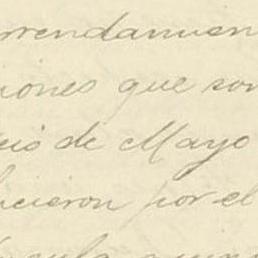 arrendamien
ciones que son
seis de Mayo
hicieron por el